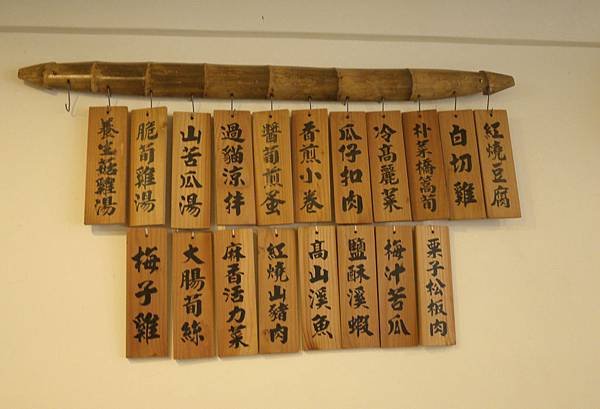 紅燒豆腐
白切雞
朴菜橋篙筍
冷高麗菜
瓜仔扣肉
香煎小卷
醬筍煎蛋
過貓涼拌
山苦瓜湯
脆筍雞湯
養生菇雞湯
栗子松板肉
梅汁苦瓜
鹽酥溪蝦
高山溪魚
紅燒山豬肉
麻香活力菜
大腸筍絲
梅子雞